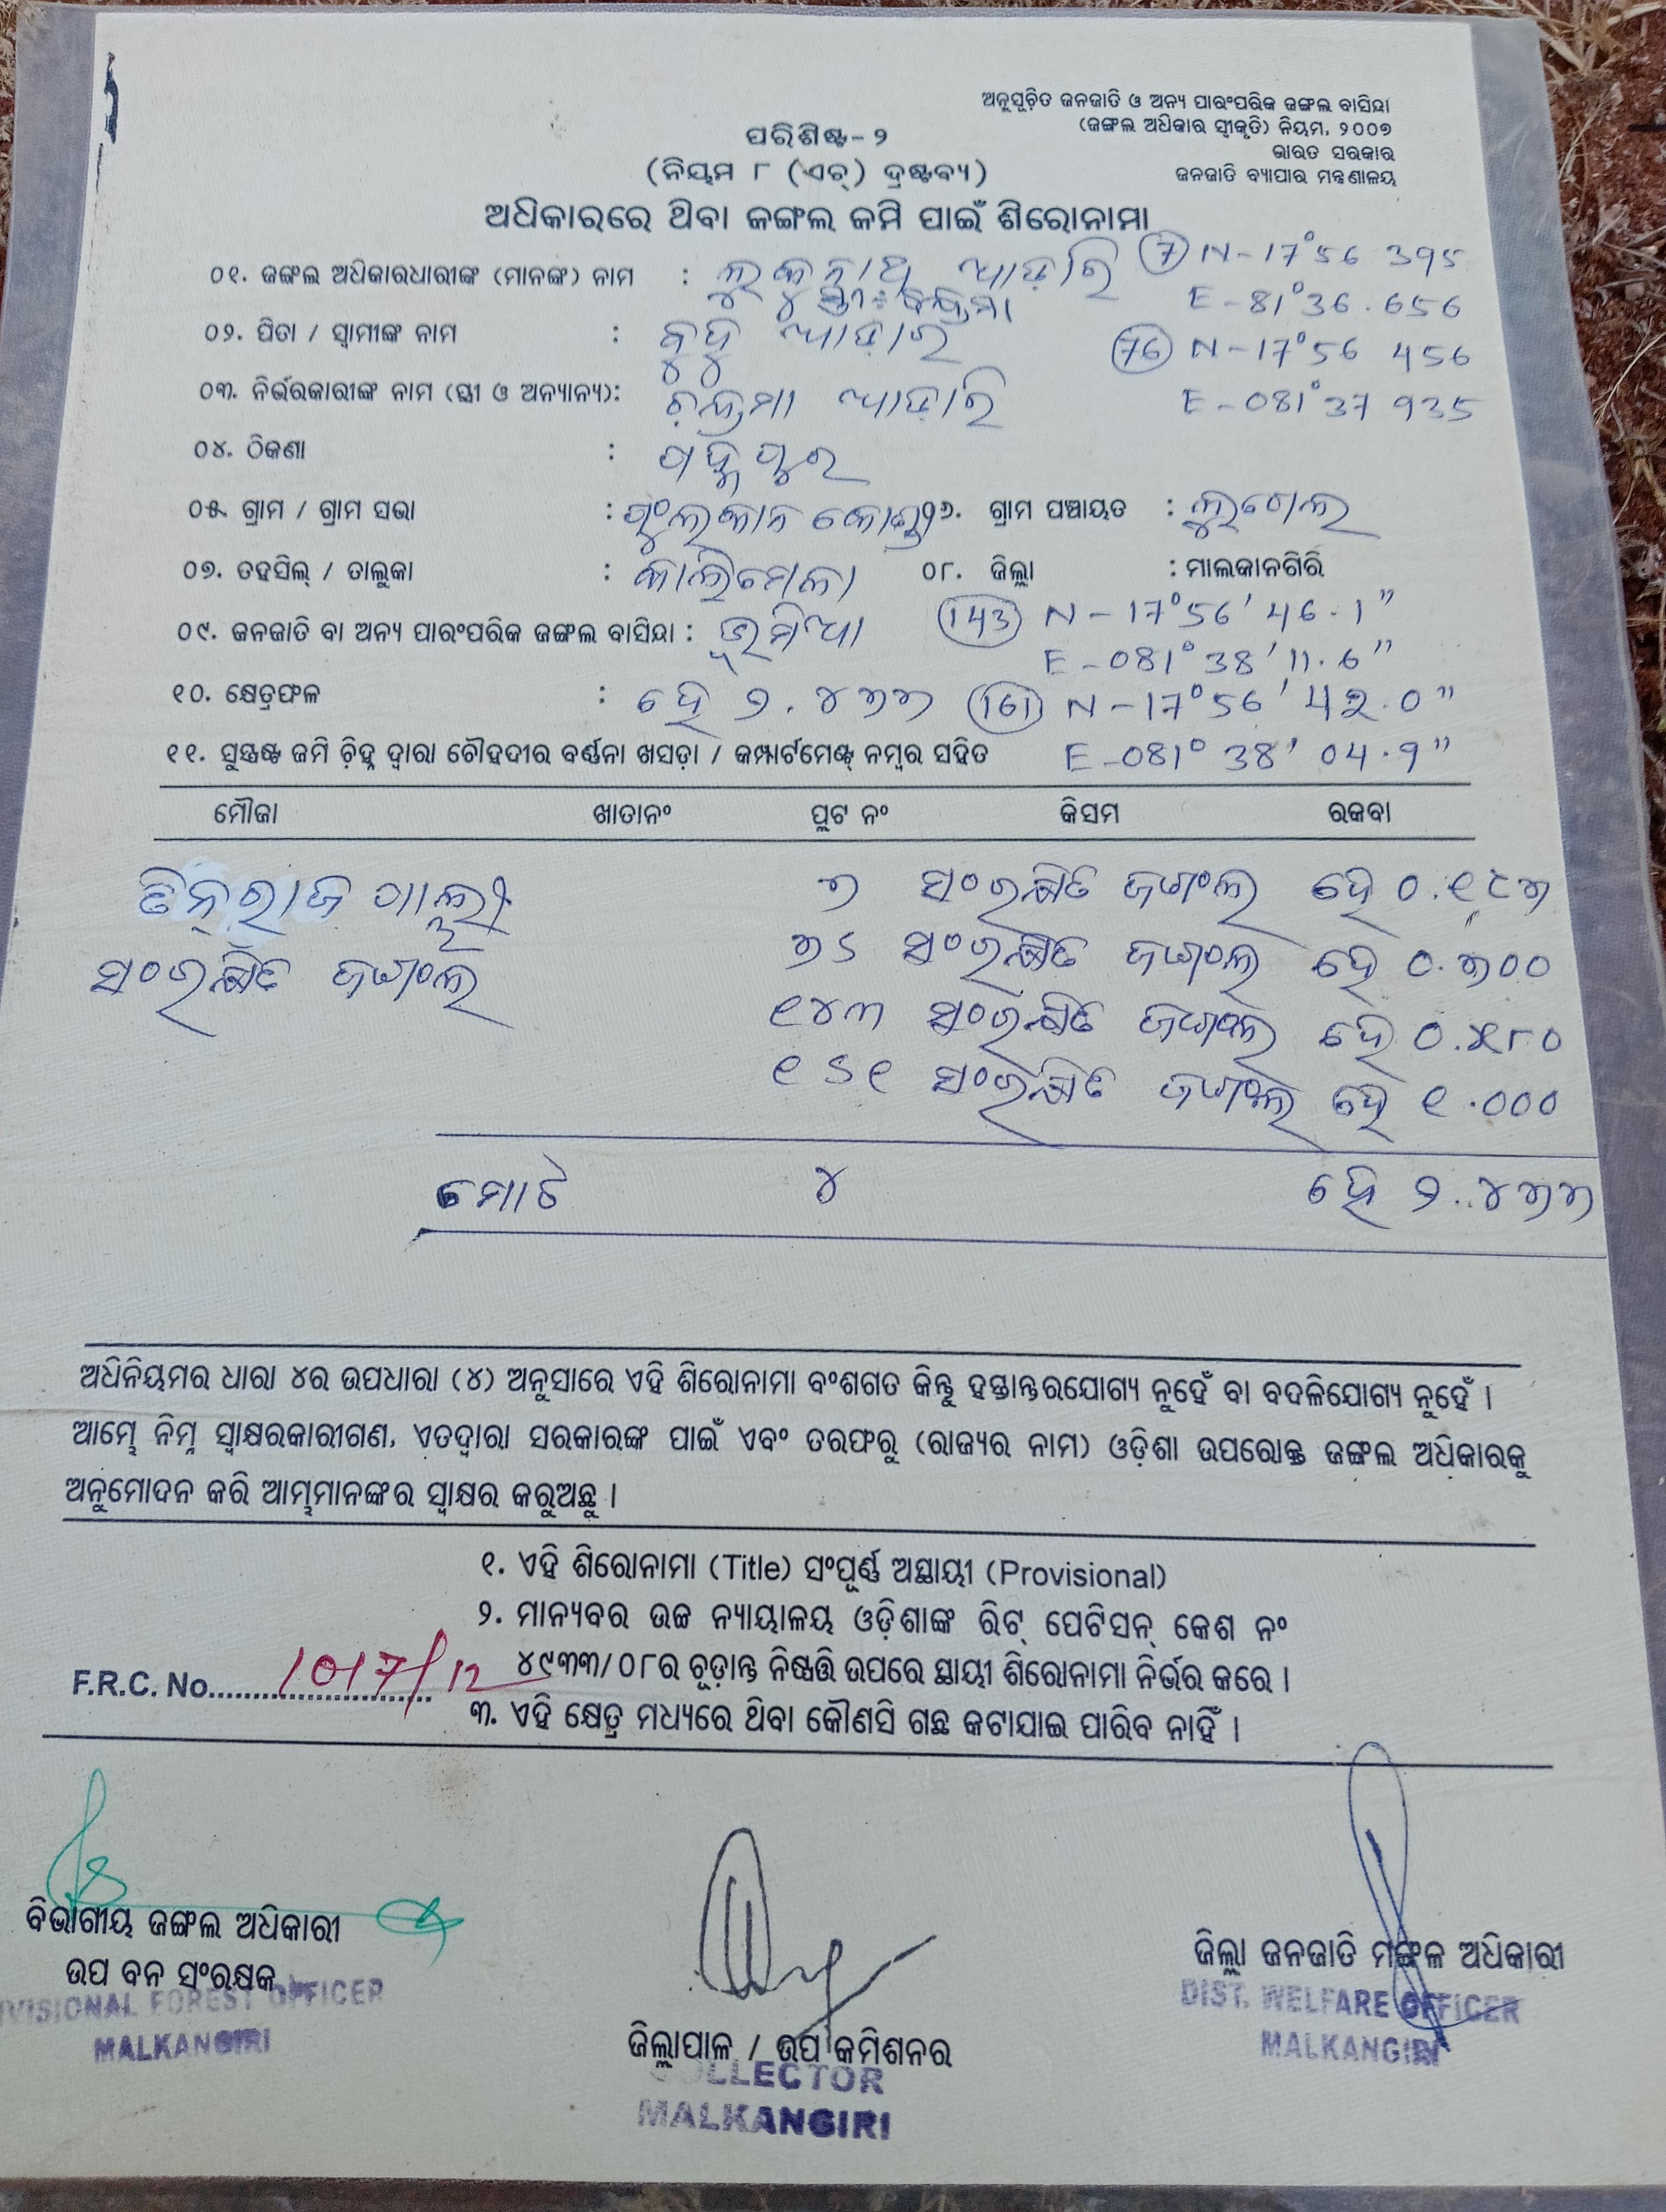 ଅନୁସୂଚିତ ଜନଜାତି ଓ ଅନ୍ୟ ପାରଂପରିକ ଜଙ୍ଗଲ ବାସିନ୍ଦା
(ଜଙ୍ଗଲ ଅଧିକାର ସ୍ୱୀକୃତି) ନିୟମ, ୨୦୦୭
ଭାରତ ସରକାର
ଜନଜାତି ବ୍ୟାପାର ମନ୍ତ୍ରଣାଳୟ
ପରିଶିଷ୍ଟ-୨
(ନିୟମ ୮ (ଏଚ୍) ଦ୍ରଷ୍ଟବ୍ୟ)
ଅଧିକାରରେ ଥିବା ଜଙ୍ଗଲ ଜମି ପାଇଁ ଶିରୋନାମା
୦୧. ଜଙ୍ଗଲ ଅଧିକାରଧାରୀଙ୍କ (ମାନଙ୍କ) ନାମ :
7 N-17°56 395
E-81°36.656
୦୨. ପିତା / ସ୍ୱାମୀଙ୍କ ନାମ :
76 N-17°56 456
E-081°37 935
୦୩. ନିର୍ଭରକାରୀଙ୍କ ନାମ (ସ୍ତ୍ରୀ ଓ ଅନ୍ୟାନ୍ୟ):
୦୪. ଠିକଣା :
୦୫. ଗ୍ରାମ / ଗ୍ରାମ ସଭା : ୦୬. ଗ୍ରାମ ପଞ୍ଚାୟତ :
୦୭. ତହସିଲ୍ / ତାଲୁକା : କାଲିମେଳା ୦୮. ଜିଲ୍ଲା : ମାଲକାନଗିରି
143 N-17°56'46.1"
E-081°38'11.6"
୦୯. ଜନଜାତି ବା ଅନ୍ୟ ପାରଂପରିକ ଜଙ୍ଗଲ ବାସିନ୍ଦା : ଭୂମିଆ
୧୦. କ୍ଷେତ୍ରଫଳ : ହେ ୨.୪୭୭
161 N-17°56'42.0"
E-081°38'04.9"
୧୧. ସୁସ୍ପଷ୍ଟ ଜମି ଚିହ୍ନ ଦ୍ୱାରା ଚୌହଦୀର ବର୍ଣ୍ଣନା ଖସଡ଼ା / କମ୍ପାର୍ଟମେଣ୍ଟ୍ ନମ୍ବର ସହିତ
ମୌଜା ଖାତାନଂ ପ୍ଲଟ ନଂ କିସମ ରକବା
୭ ସଂରକ୍ଷିତ ଜଙ୍ଗଲ ହେ ୦.୧୯୭
ସଂରକ୍ଷିତ ଜଙ୍ଗଲ ୭୬ ସଂରକ୍ଷିତ ଜଙ୍ଗଲ ହେ ୦.୭୦୦
୧୪୩ ସଂରକ୍ଷିତ ଜଙ୍ଗଲ ହେ ୦.୫୮୦
୧୬୧ ସଂରକ୍ଷିତ ଜଙ୍ଗଲ ହେ ୧.୦୦୦
ମୋଟ ୪ ହେ ୨.୪୭୭
ଅଧିନିୟମର ଧାରା ୪ର ଉପଧାରା (୪) ଅନୁସାରେ ଏହି ଶିରୋନାମା ବଂଶଗତ କିନ୍ତୁ ହସ୍ତାନ୍ତରଯୋଗ୍ୟ ନୁହେଁ ବା ବଦଳିଯୋଗ୍ୟ ନୁହେଁ ।
ଆମ୍ଭେ ନିମ୍ନ ସ୍ୱାକ୍ଷରକାରୀଗଣ, ଏତଦ୍ୱାରା ସରକାରଙ୍କ ପାଇଁ ଏବଂ ତରଫରୁ (ରାଜ୍ୟର ନାମ) ଓଡ଼ିଶା ଉପରୋକ୍ତ ଜଙ୍ଗଲ ଅଧିକାରକୁ
ଅନୁମୋଦନ କରି ଆମ୍ଭମାନଙ୍କର ସ୍ୱାକ୍ଷର କରୁଅଛୁ ।
୧. ଏହି ଶିରୋନାମା (Title) ସଂପୂର୍ଣ୍ଣ ଅସ୍ଥାୟୀ (Provisional)
୨. ମାନ୍ୟବର ଉଚ୍ଚ ନ୍ୟାୟାଳୟ ଓଡ଼ିଶାଙ୍କ ରିଟ୍ ପେଟିସନ୍ କେଶ ନଂ
୪୯୩୩/୦୮ର ଚୂଡ଼ାନ୍ତ ନିଷ୍ପତ୍ତି ଉପରେ ସ୍ଥାୟୀ ଶିରୋନାମା ନିର୍ଭର କରେ ।
F.R.C. No. 1017/12
୩. ଏହି କ୍ଷେତ୍ର ମଧ୍ୟରେ ଥିବା କୌଣସି ଗଛ କଟାଯାଇ ପାରିବ ନାହିଁ ।
ବିଭାଗୀୟ ଜଙ୍ଗଲ ଅଧିକାରୀ
ଉପ ବନ ସଂରକ୍ଷକ
DIVISIONAL FOREST OFFICER
MALKANGIRI
ଜିଲ୍ଲାପାଳ / ଉପ କମିଶନର
COLLECTOR
MALKANGIRI
ଜିଲ୍ଲା ଜନଜାତି ମଙ୍ଗଳ ଅଧିକାରୀ
DIST. WELFARE OFFICER
MALKANGIRI